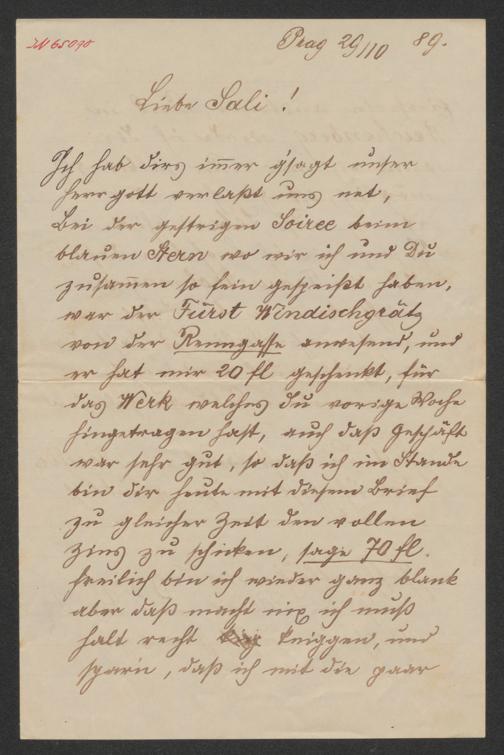 IN 65090
Prag 29/10 89.
Liebe Sali!
Ich hab dirs im̅er g'sagt unser
Herrgott verlaßt uns net,
bei der gestrigen Soiree beim
blauen Stern wo wir ich und Du
zusam̅en so fein gespeißt haben,
war der Fürst Windischgrätz
von der Renngasse anwesend, und
er hat mir 20 fl geschenkt, für
das Werk welches du vorige Woche
hingetragen hast, auch daß Geschäft
war sehr gut, so daß ich im Stande
bin dir heute mit diesem Brief
zu gleicher Zeit den vollen
Zins zu schicken, sage 70 fl.
freilich bin ich wieder ganz blank
aber daß macht nix ich muß
halt recht kniggen, und
sparn, daß ich mit die paar